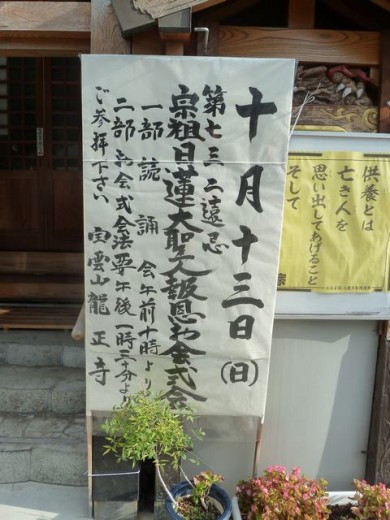 十月十三日(日)
第七三二遠忌
宗祖日蓮大聖人報恩お会式会
一部読誦会午前十時より
二部お会式会法要午後一時三十分より
ご参拝下さい 宝雲山龍正寺
供養とは
亡き人を
思い出してあげること
そして
宗